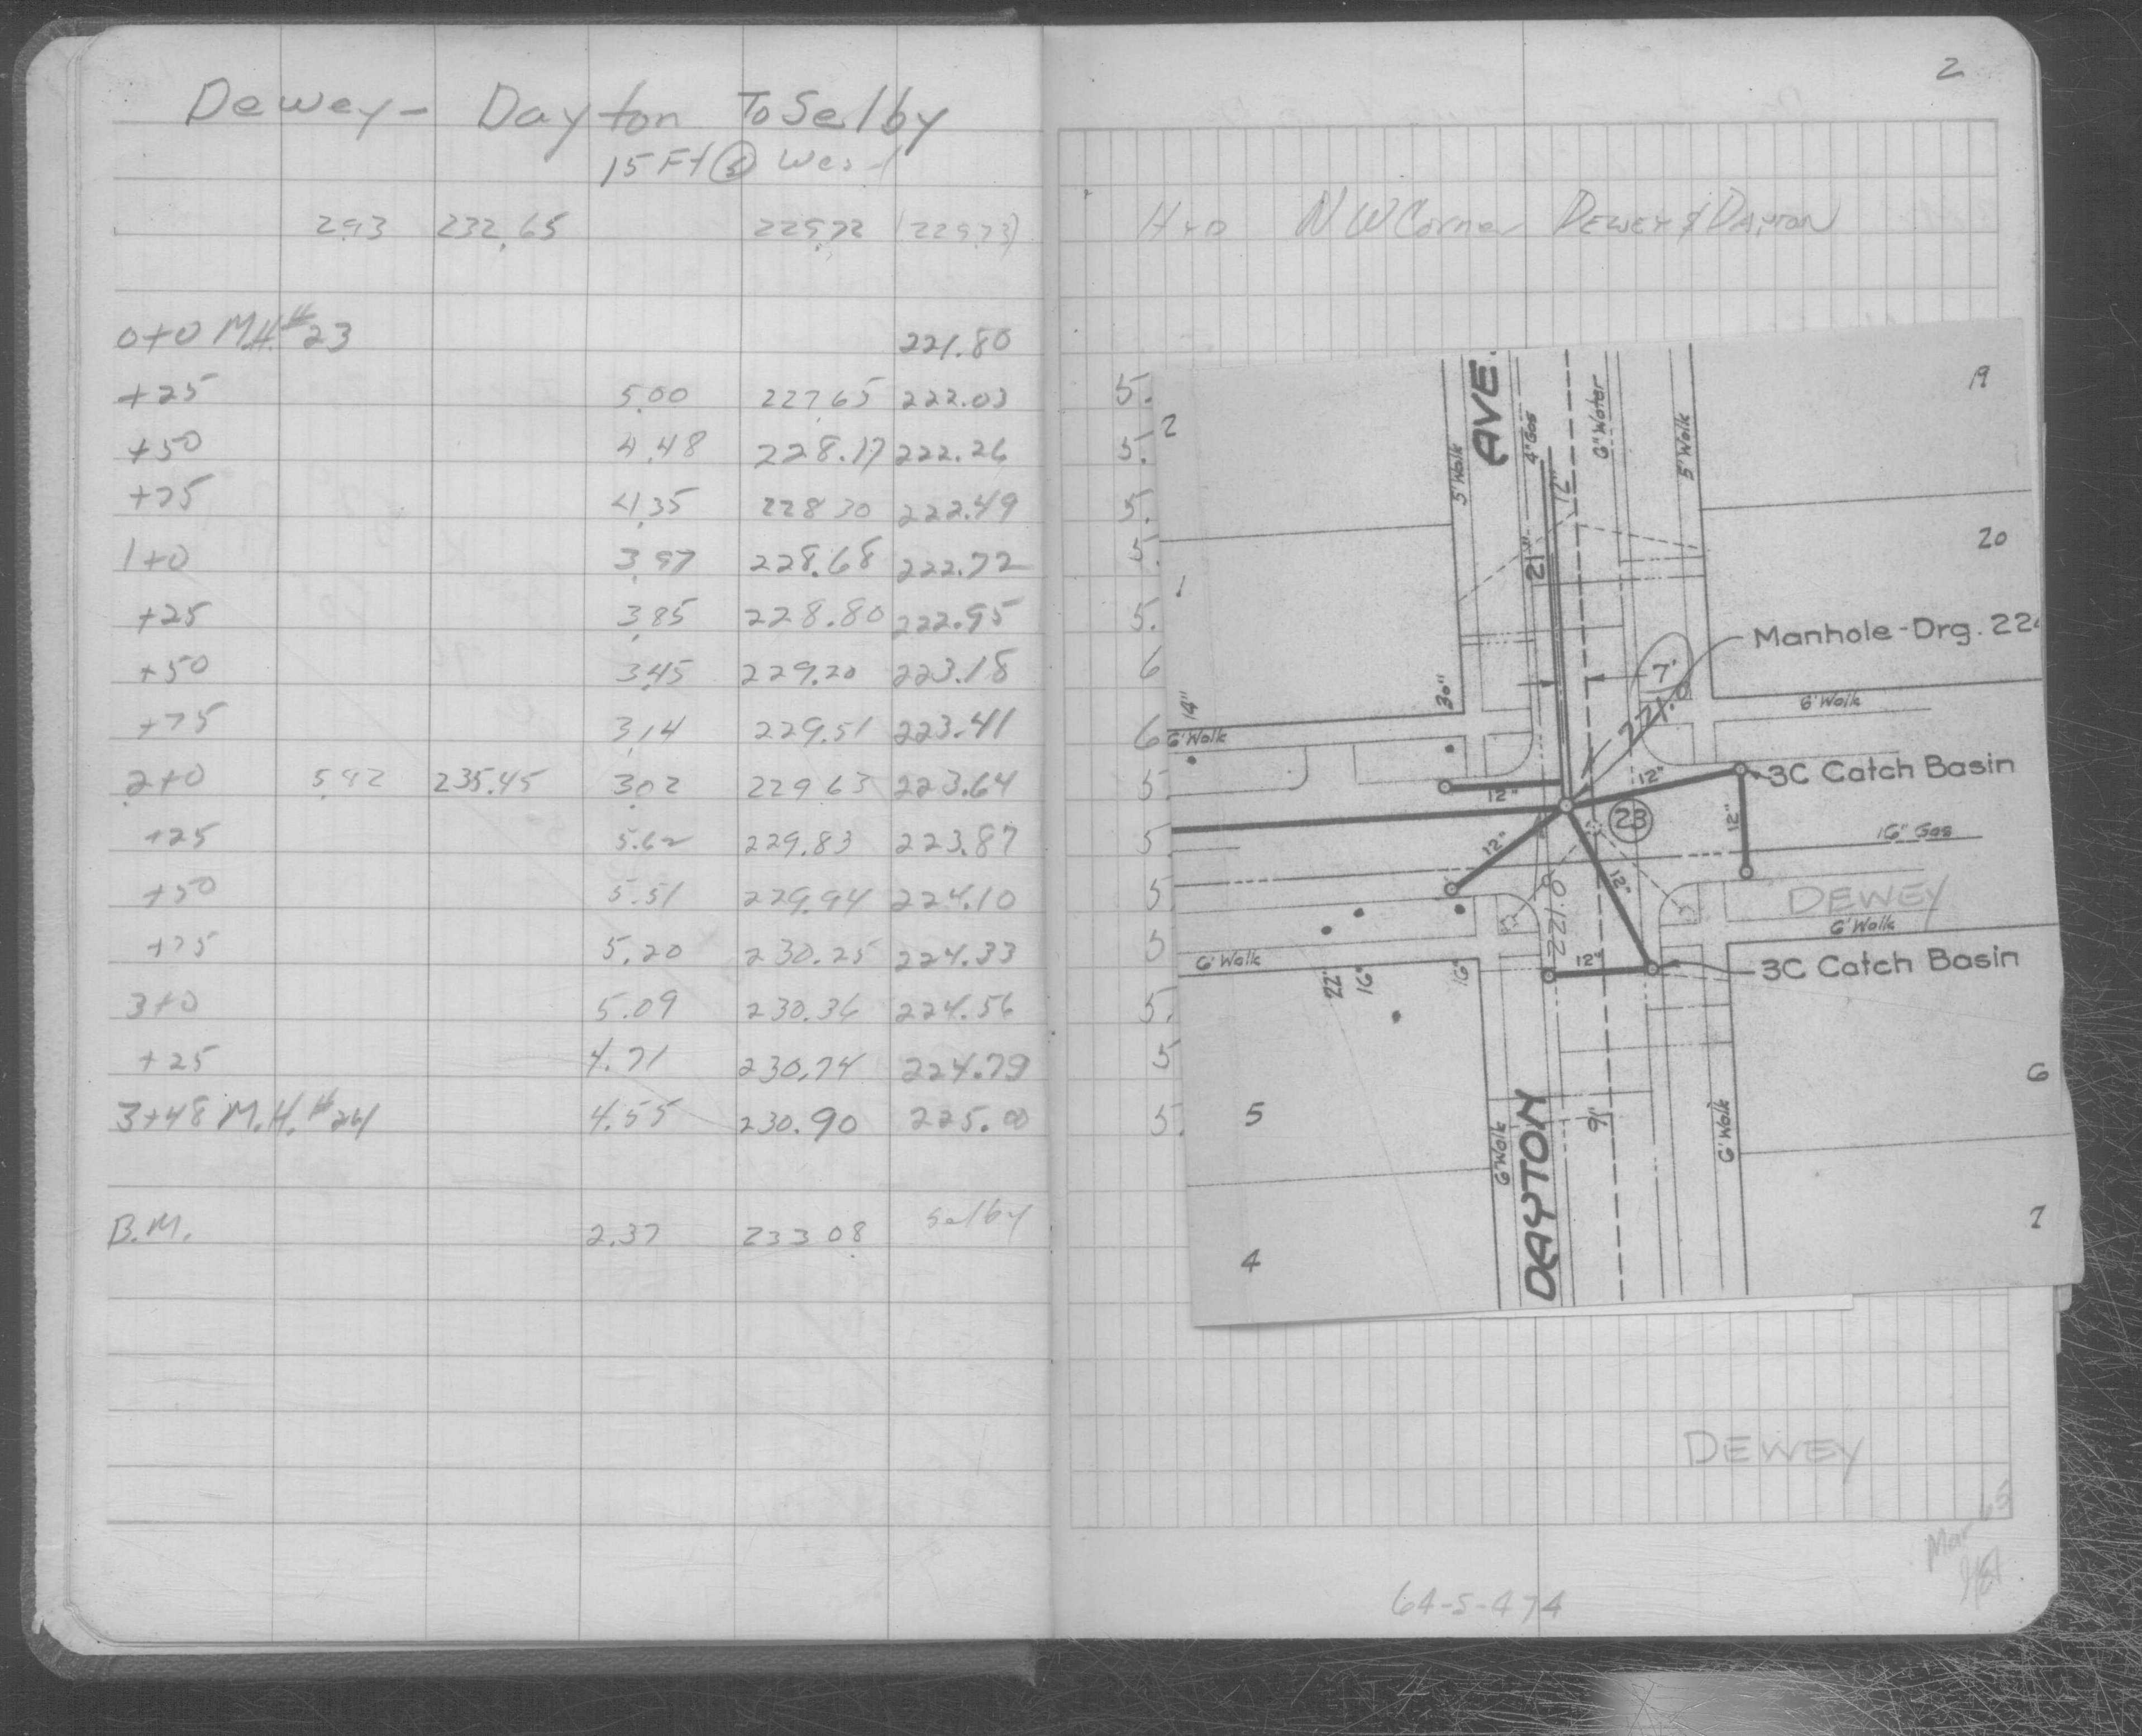 Dewey - Dayton To Selby
15 Ft (S) West
2.93 232.65 229.72 (229.73)
0+0 M.H.#23 221.80
+25 5.00 227.65 222.03
+50 4.48 228.17 222.26
+75 4.35 228.30 222.49
1+0 3.97 228.68 222.72
+25 3.85 228.80 222.95
+50 3.45 229.20 223.18
+75 3.14 229.51 223.41
2+0 5.92 235.45 3.02 229.63 223.64
+25 5.62 229.83 223.87
+50 5.51 229.94 224.10
+75 5.20 230.25 224.33
3+0 5.09 230.36 224.56
+25 4.71 230.74 224.79
3+48 M.H.#24 4.55 230.90 225.00
B.M. 2.37 233.08 Selby
2
HyD NW Corner DEWEY & DAYTON
5.
5.
5.
5.
5.
6
6
5.
5
5
5
5.
5
5.
AVE.
5' Walk
4" Gas
12"
6" Water
5' Walk
19
2
20
1
21"
Manhole-Drg. 224
7'
221.0
14"
30"
6' Walk
6' Walk
12"
3C Catch Basin
12"
12"
23
12"
16" Gas
12"
DEWEY
6' Walk
221.0
6' Walk
22"
16"
16"
12"
3C Catch Basin
5
6' Walk
DAYTON
9'
6' Walk
6
4
7
DEWEY
Mar 65
64-S-474